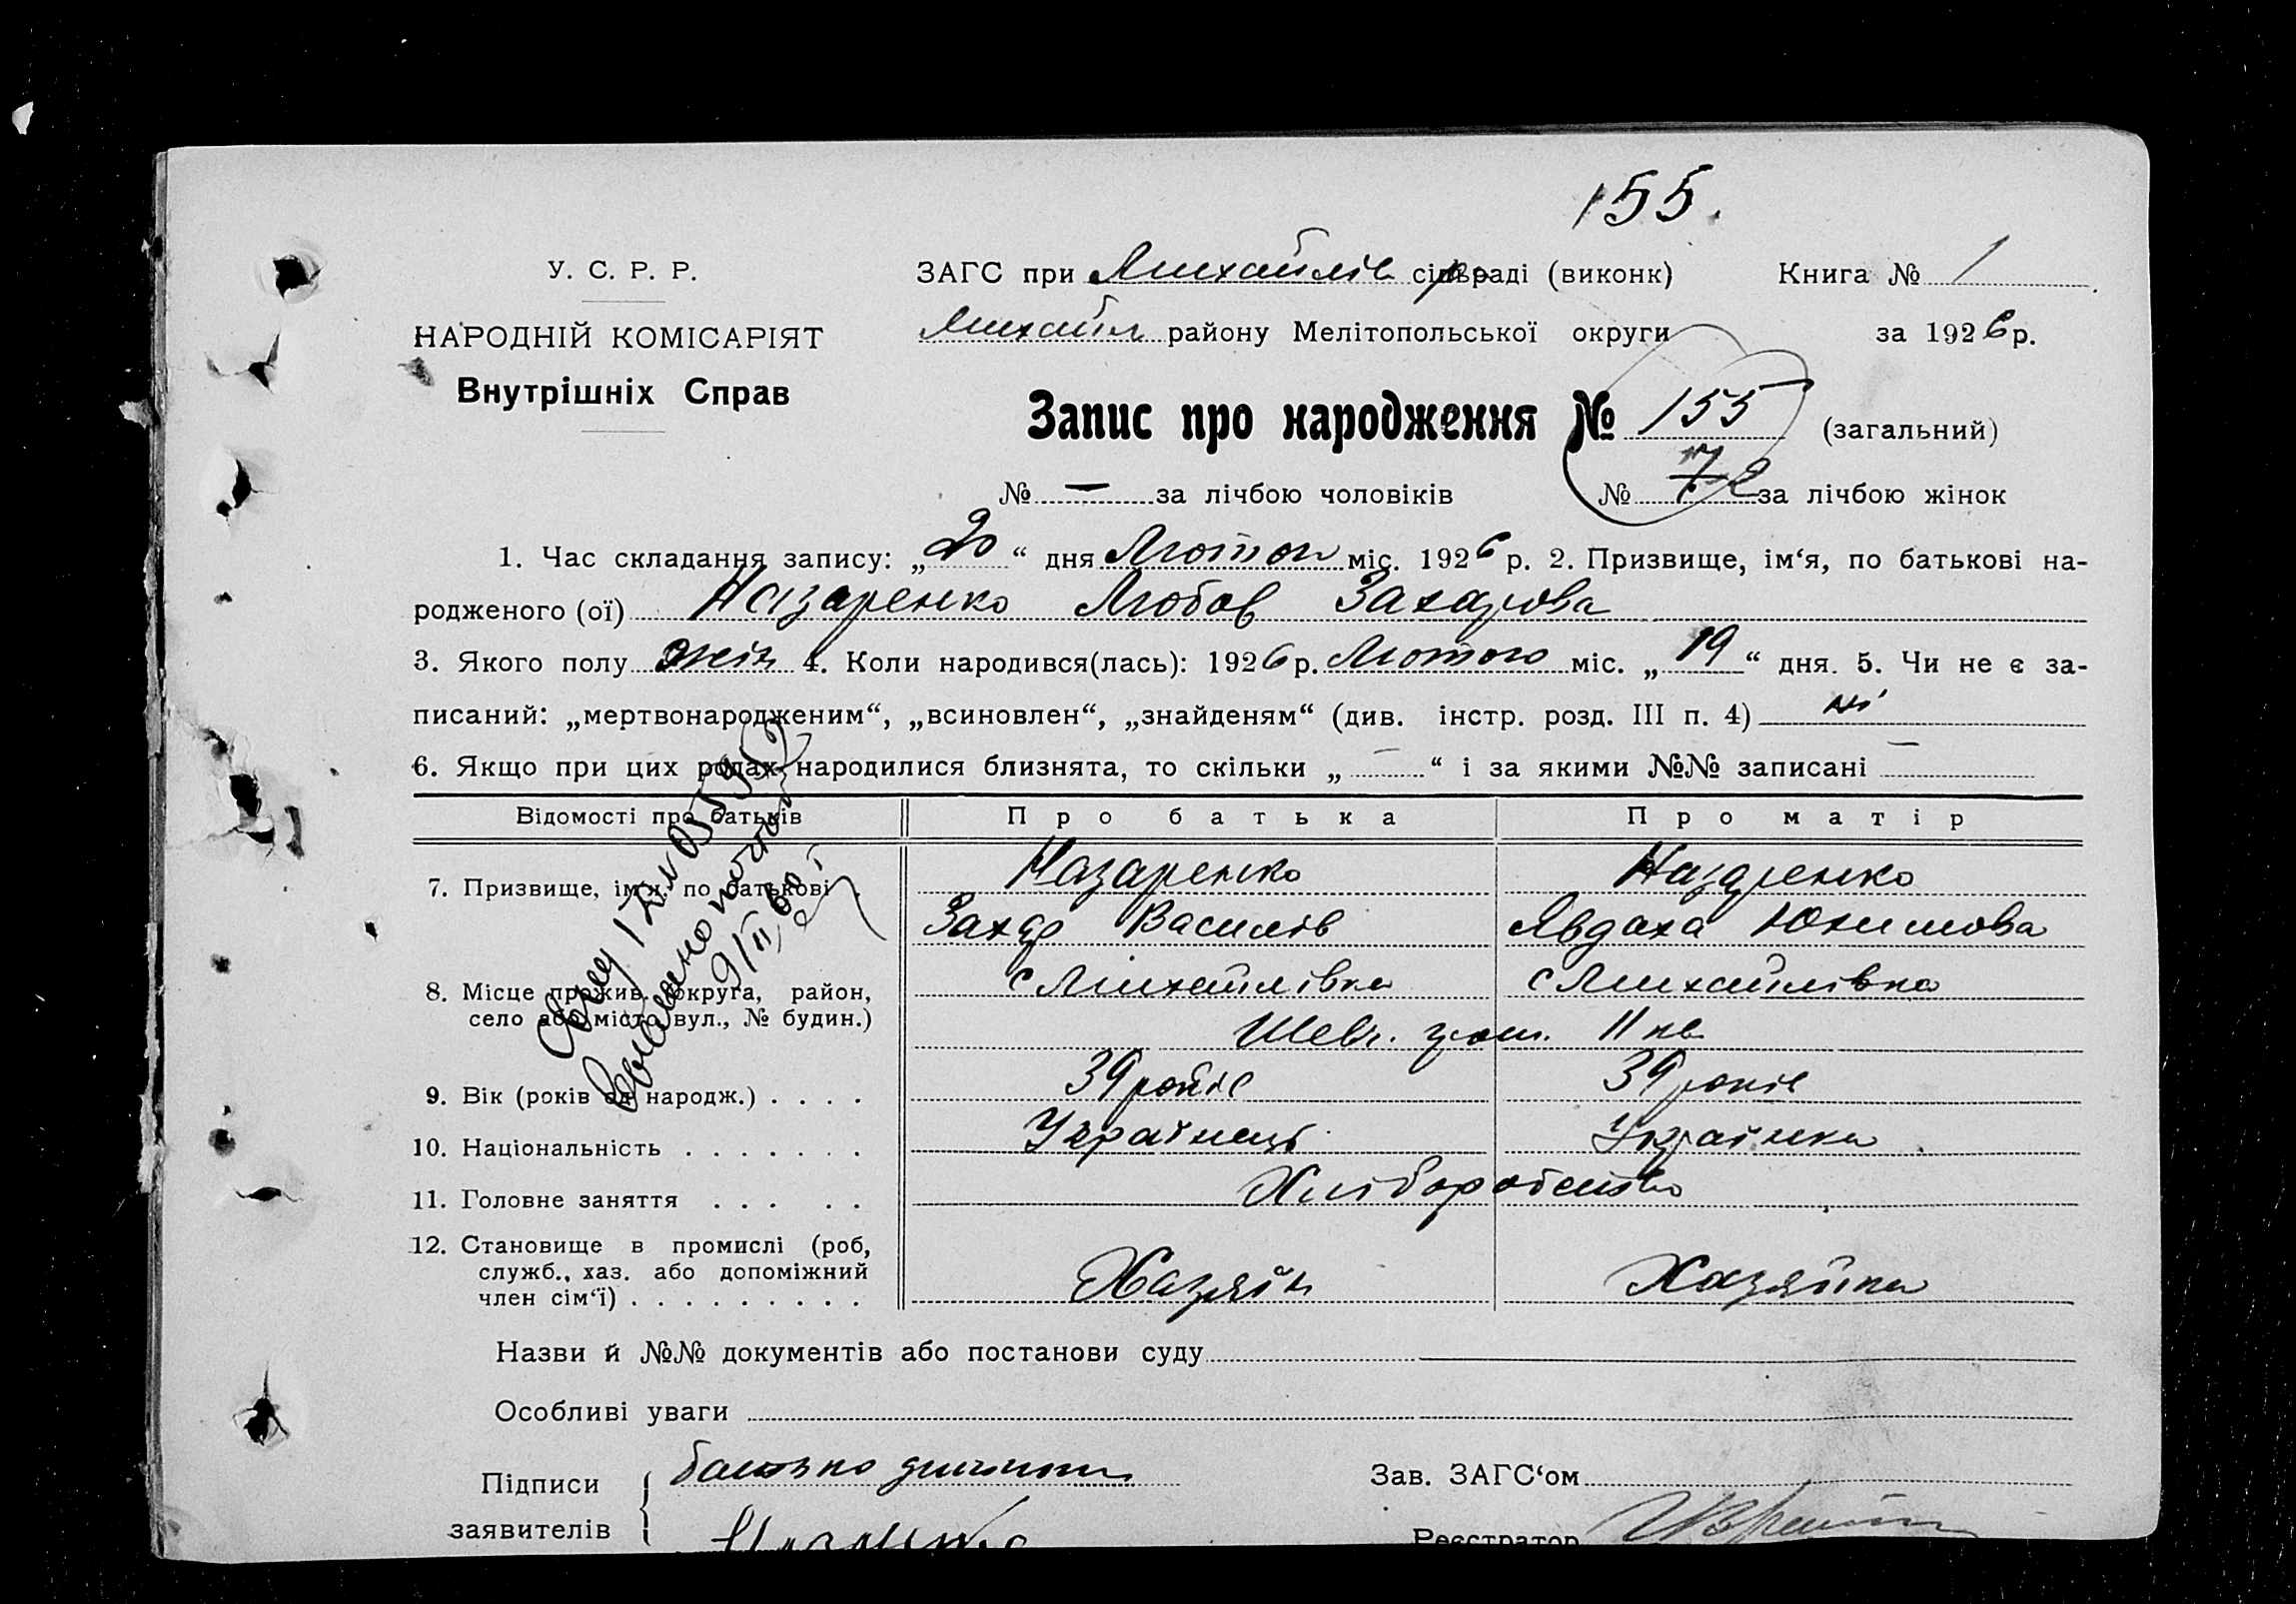 155.
У. С. Р. Р.
НАРОДНІЙ КОМІСАРІЯТ
Внутрішніх Справ
ЗАГС при Михайлів сільраді (виконк) Книга № 1
Михайл району Мелітопольської округи за 1926 р.
Запис про народження № 155 (загальний)
№ — за лічбою чоловіків № 72 за лічбою жінок
1. Час складання запису: „20“ дня Лютого міс. 1926 р. 2. Призвище, ім‘я, по батькові на-
родженого (ої) Назаренко Любов Захарова
3. Якого полу жін 4. Коли народився(лась): 1926 р. Лютого міс. „19“ дня. 5. Чи не є за-
писаний: „мертвонародженим“, „всиновлен“, „знайденям“ (див. інстр. розд. III п. 4) ні
6. Якщо при цих родах народилися близнята, то скільки „—“ і за якими №№ записані —
Відомості про батьків Про батька Про матір
7. Призвище, ім‘я, по батькові Назаренко Назаренко
Захар Василів Явдоха Юхимова
8. Місце прожив. (округа, район, с Михайлівка с Михайлівка
село або місто вул., № будин.) Шевч. гром. 11 кв
9. Вік (років од народж.) . . . . 39 років 39 років
10. Національність . . . . . . . Українець Українка
11. Головне заняття . . . . . Хліборобство
12. Становище в промислі (роб,
служб., хаз. або допоміжний
член сім‘ї) . . . . . . . . . Хазяїн Хазяйка
Назви й №№ документів або постанови суду
Особливі уваги
Підписи батько дитини Зав. ЗАГС‘ом
заявителів Реєстратор